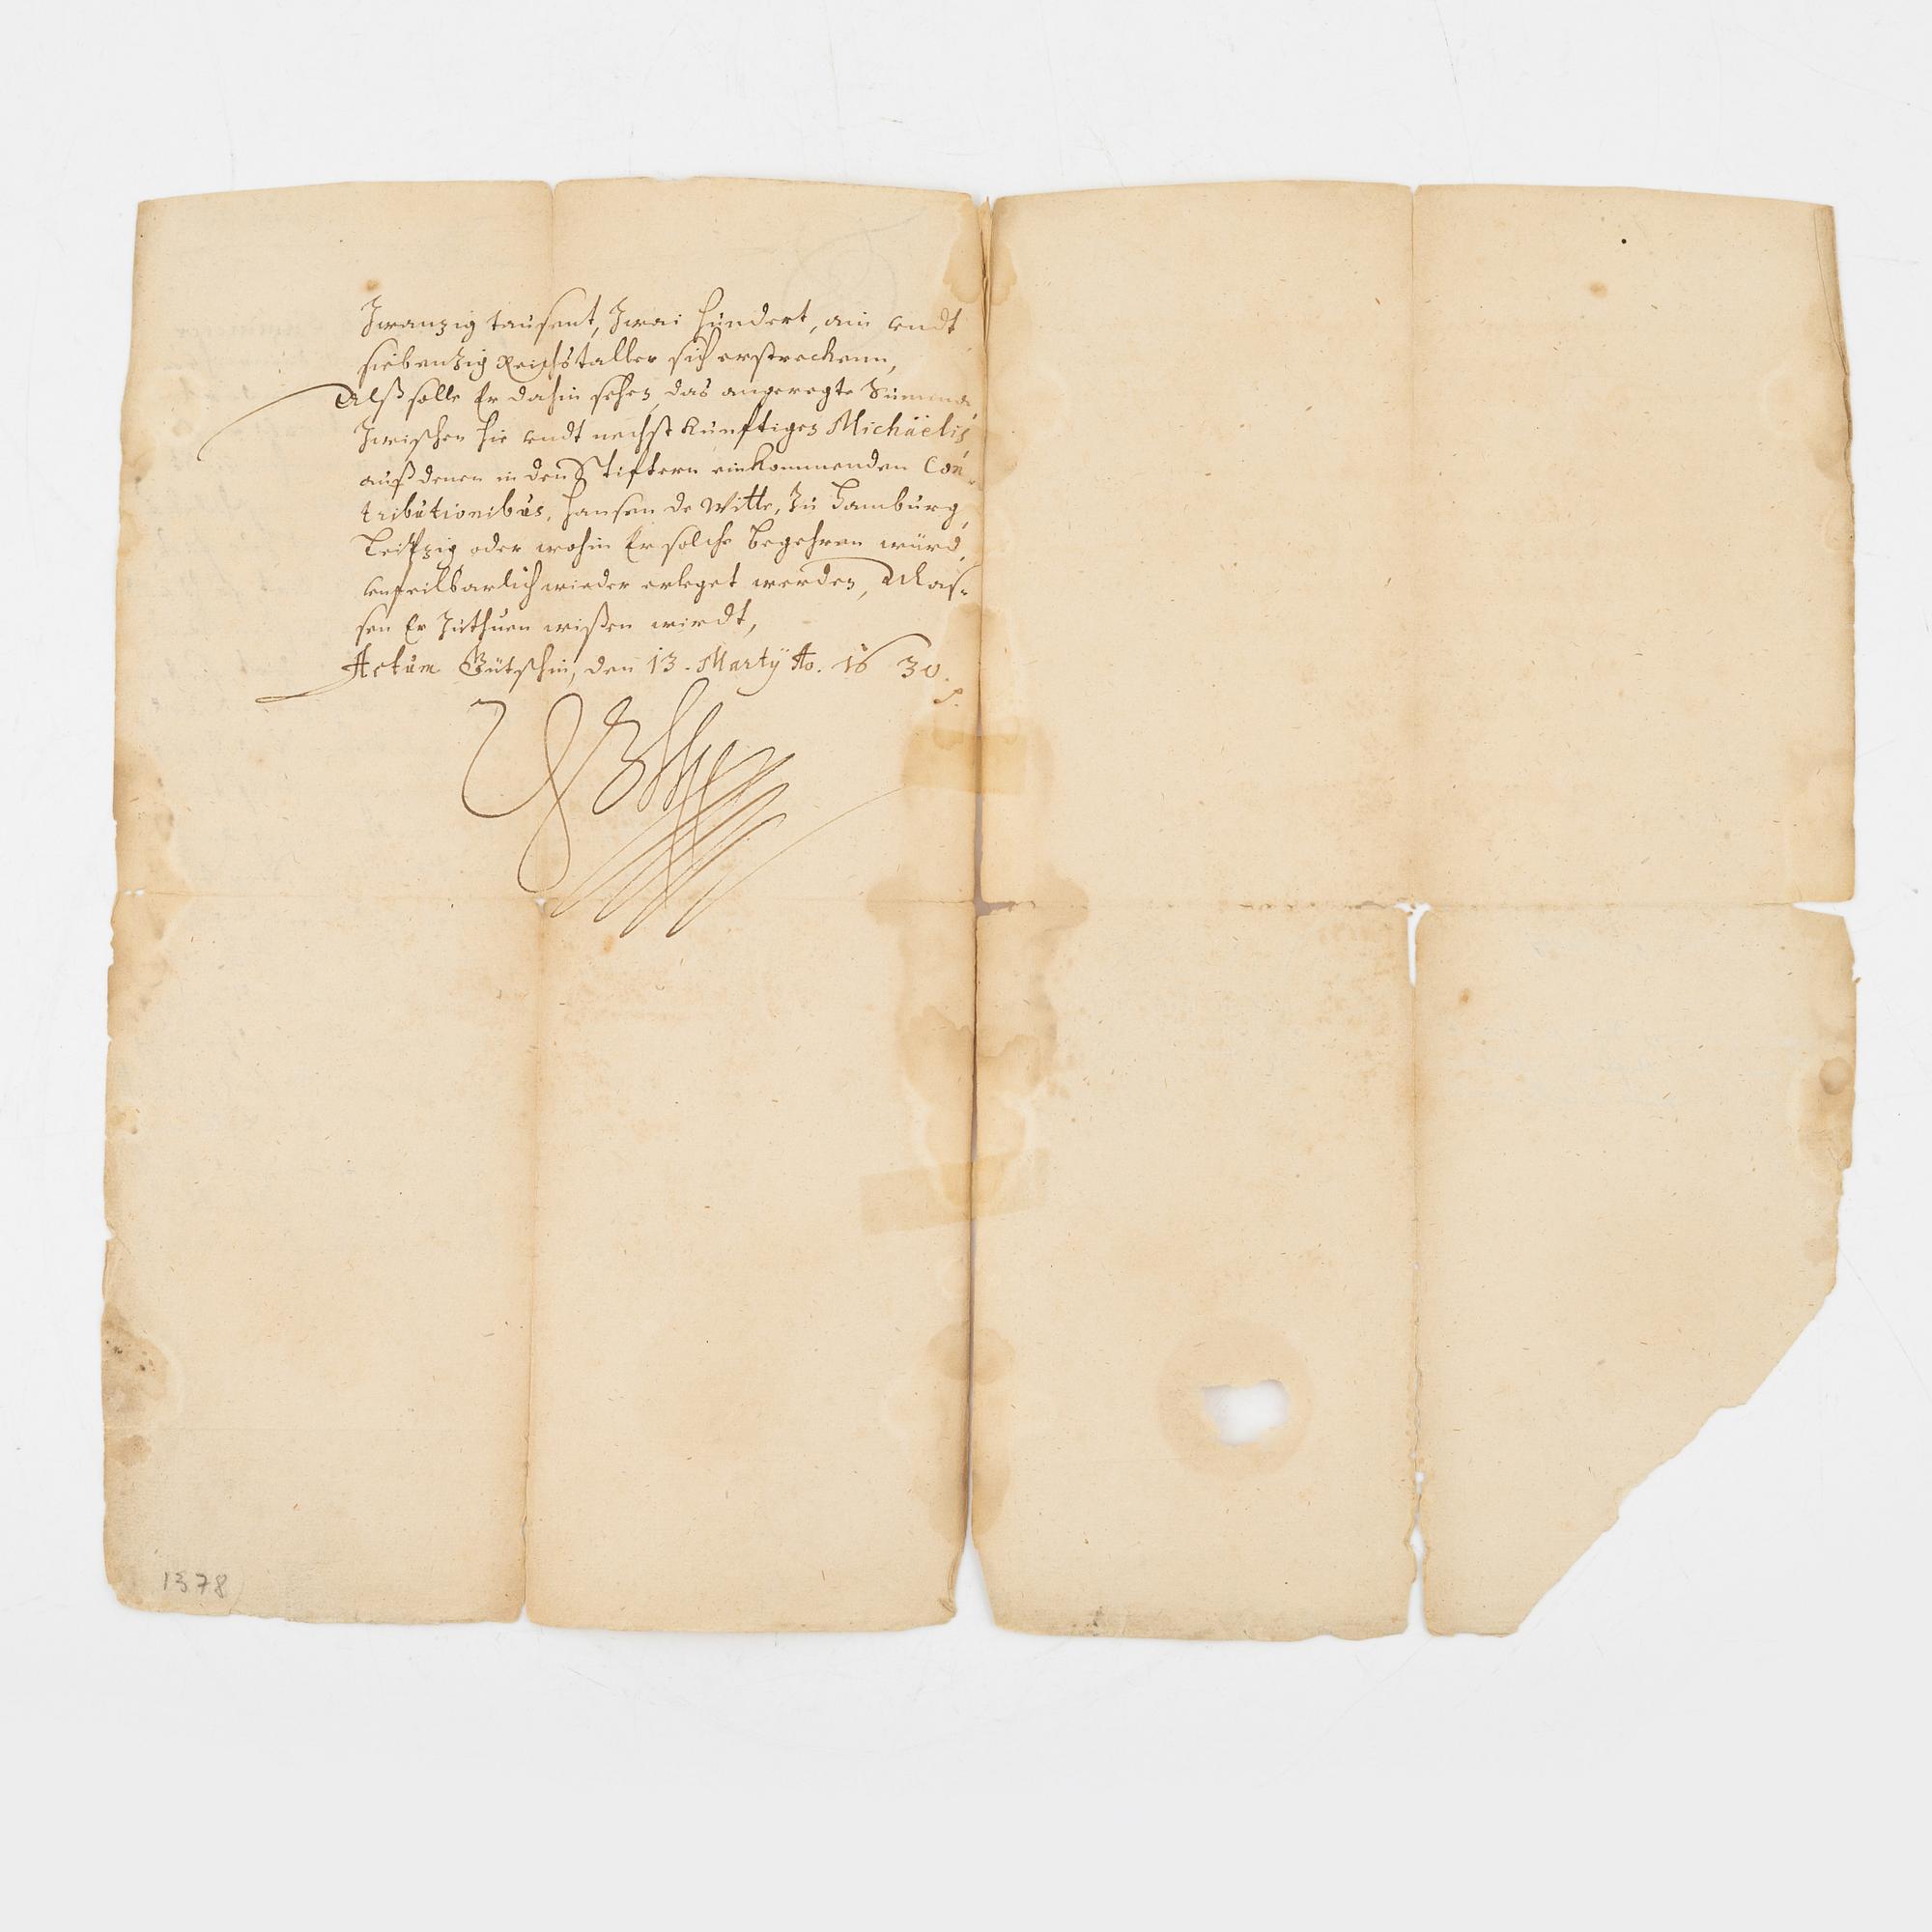 Zwanzig tausent, Zwai hundert, ain vndt
siebenzig Reichstaller sich erstreckenn,
Alß solle Er dahin sehen, das angeregte Summa,
Zwischen hie vndt nechst künftiges Michäelis
auß denen in den Stiftern einkommenden Con-
tributionibus, Hansen de Witte, Zu Hamburg,
Leipzig oder wohin Er solche begehren würd,
vnfeilbarlich wieder erleget werden, Mas-
sen Er Zuthuen wißen wirdt,
Actum Gütschin, den 13. Martÿ Ao. 16 30.
1378